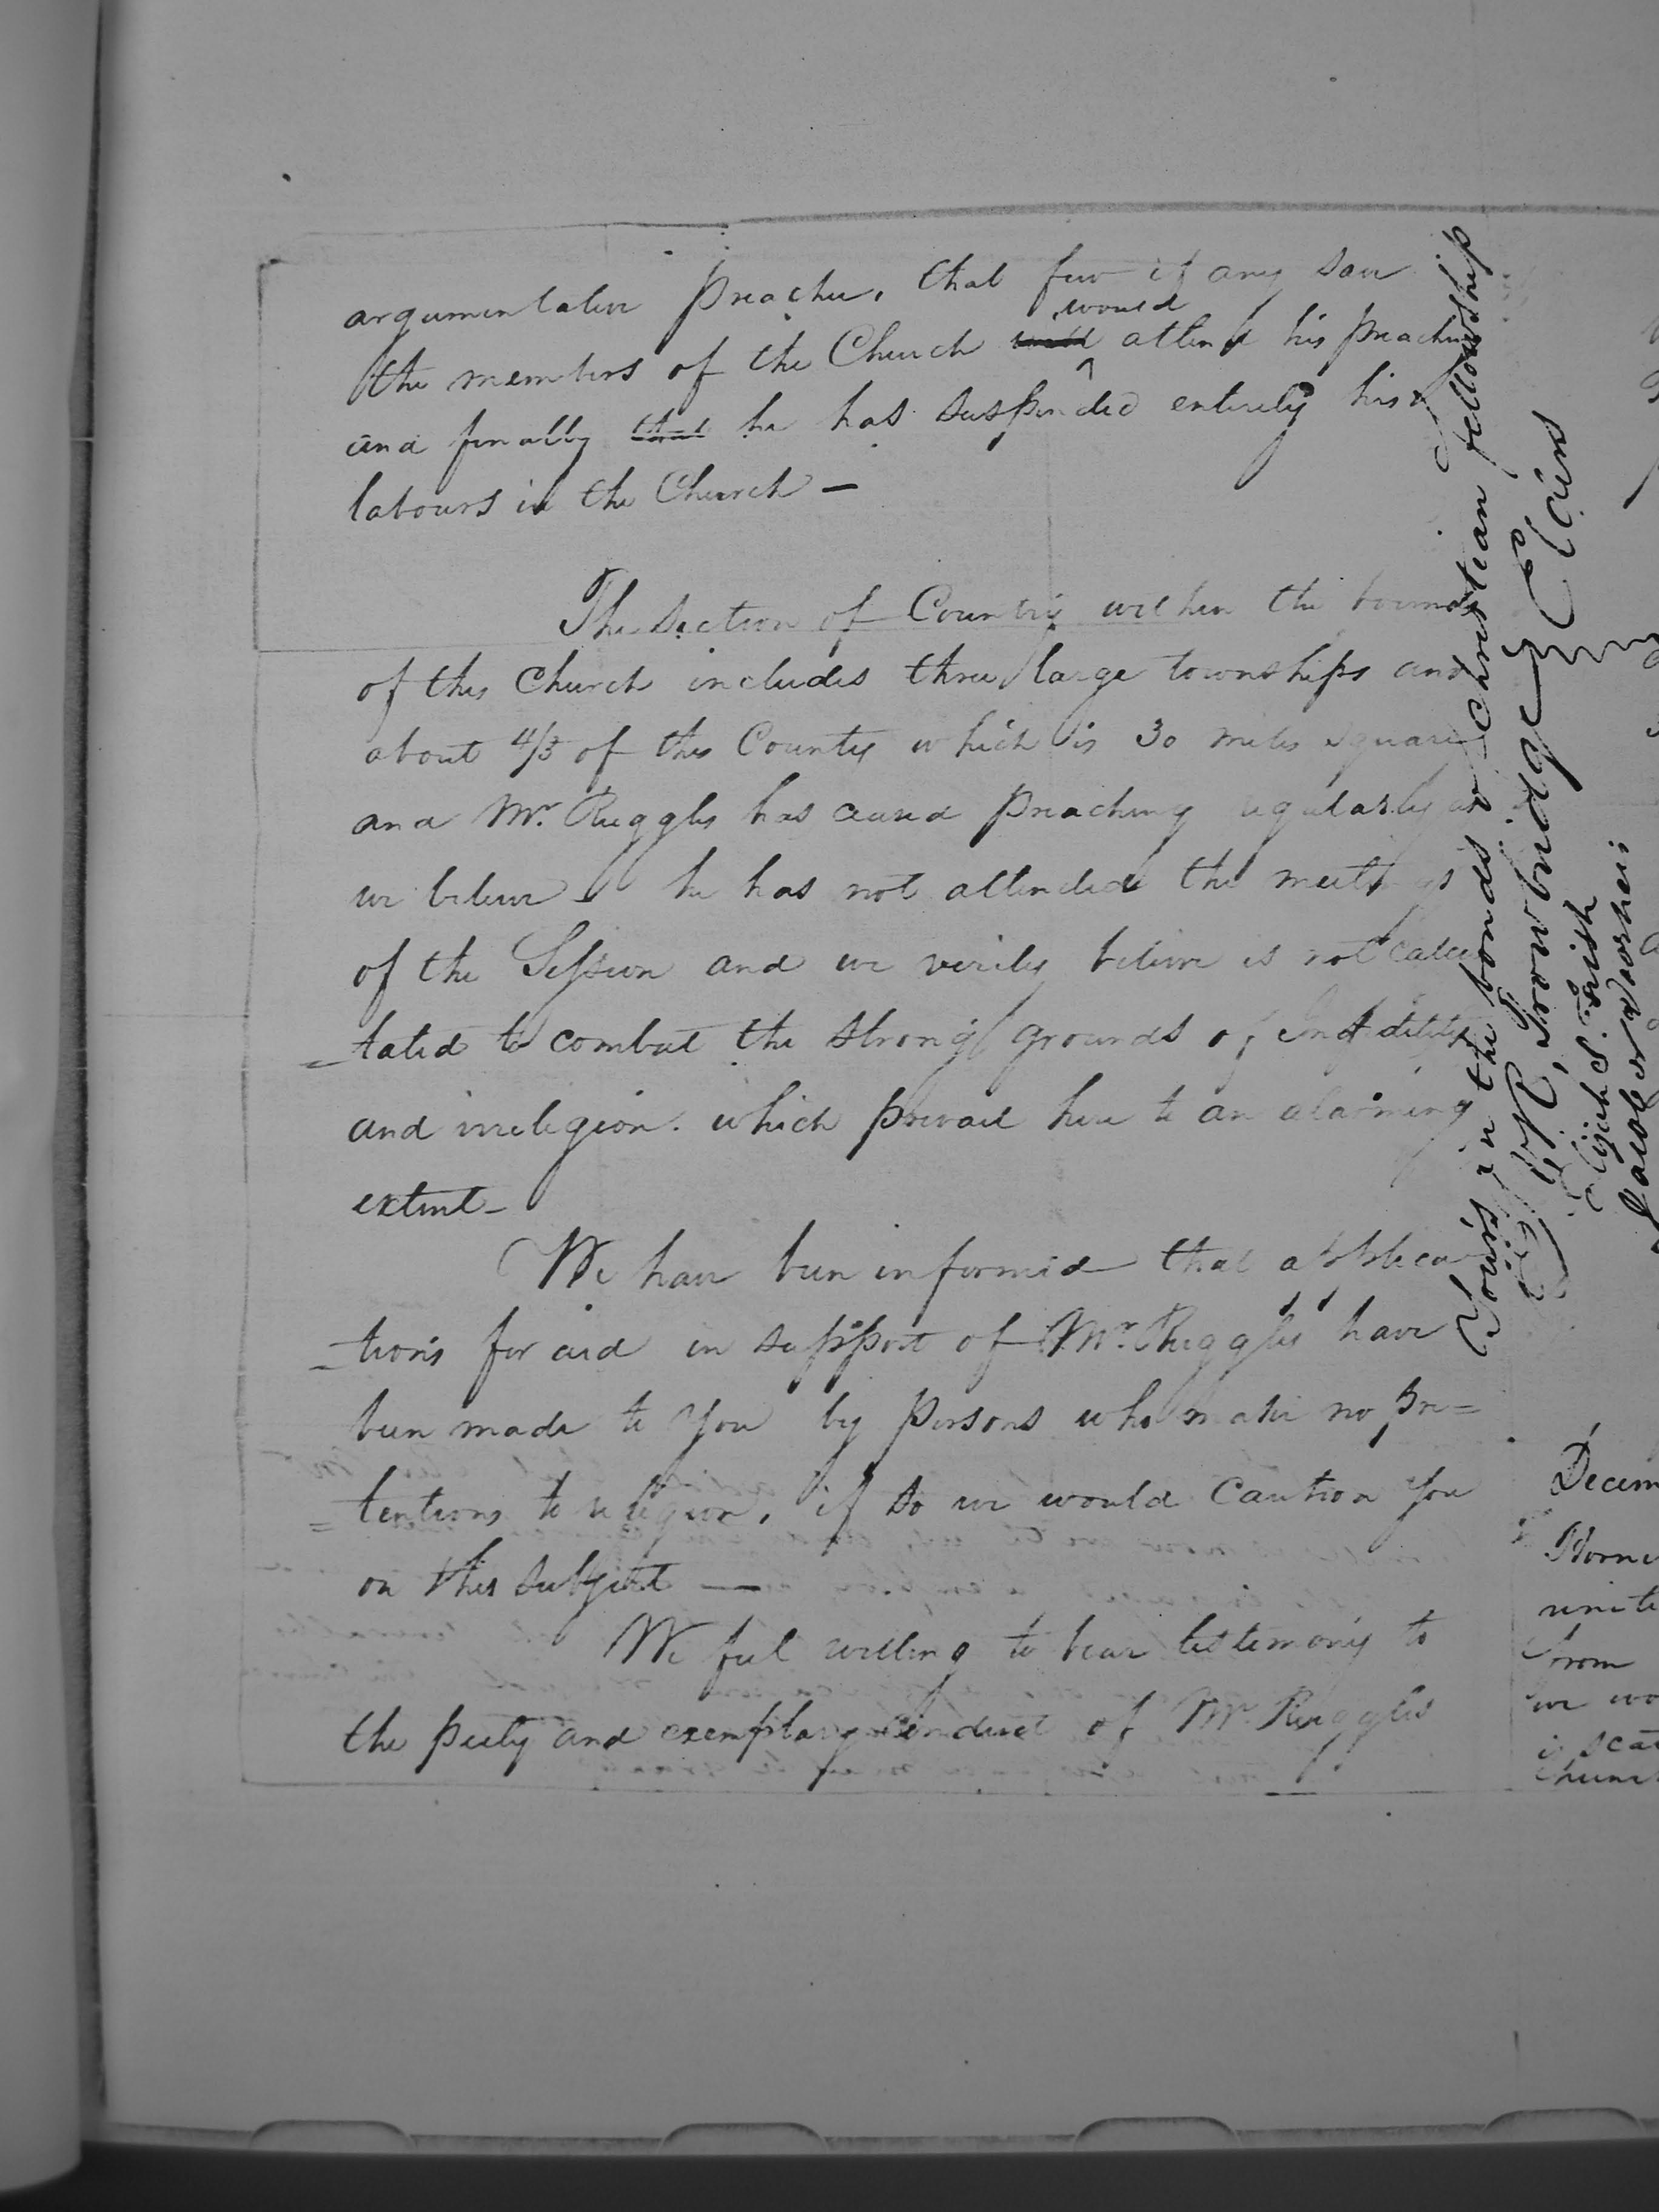 argumentative preacher, that few if any save
the members of the Church would attend his preaching
and finally that he has suspended entirely his
labours in the Church —
The section of Country within the bounds
of this Church includes three large townships and
about 4/5 of this County which is 30 miles square
and Mr. Ruggles has ceased preaching regularly as
we believe he has not attended the meetings
of the Session and we verily believe is not calcu
=lated to combat the strong grounds of Infidelity
and irreligion. which prevail here to an alarming
extent —
We have been informed that applica
=tions for aid in support of Mr. Ruggles have
been made to You by persons who make no pre=
=tentions to religion, if so we would caution You
on this subject —
We feel willing to bear testimony to
the piety and exemplary conduct of Mr. Ruggles
Yours in the bonds of Christian fellowship
Trowbridge
Elijah S. Fish
Jacob Voorheis
Elders
Decem
unite
from
we wo
is scat